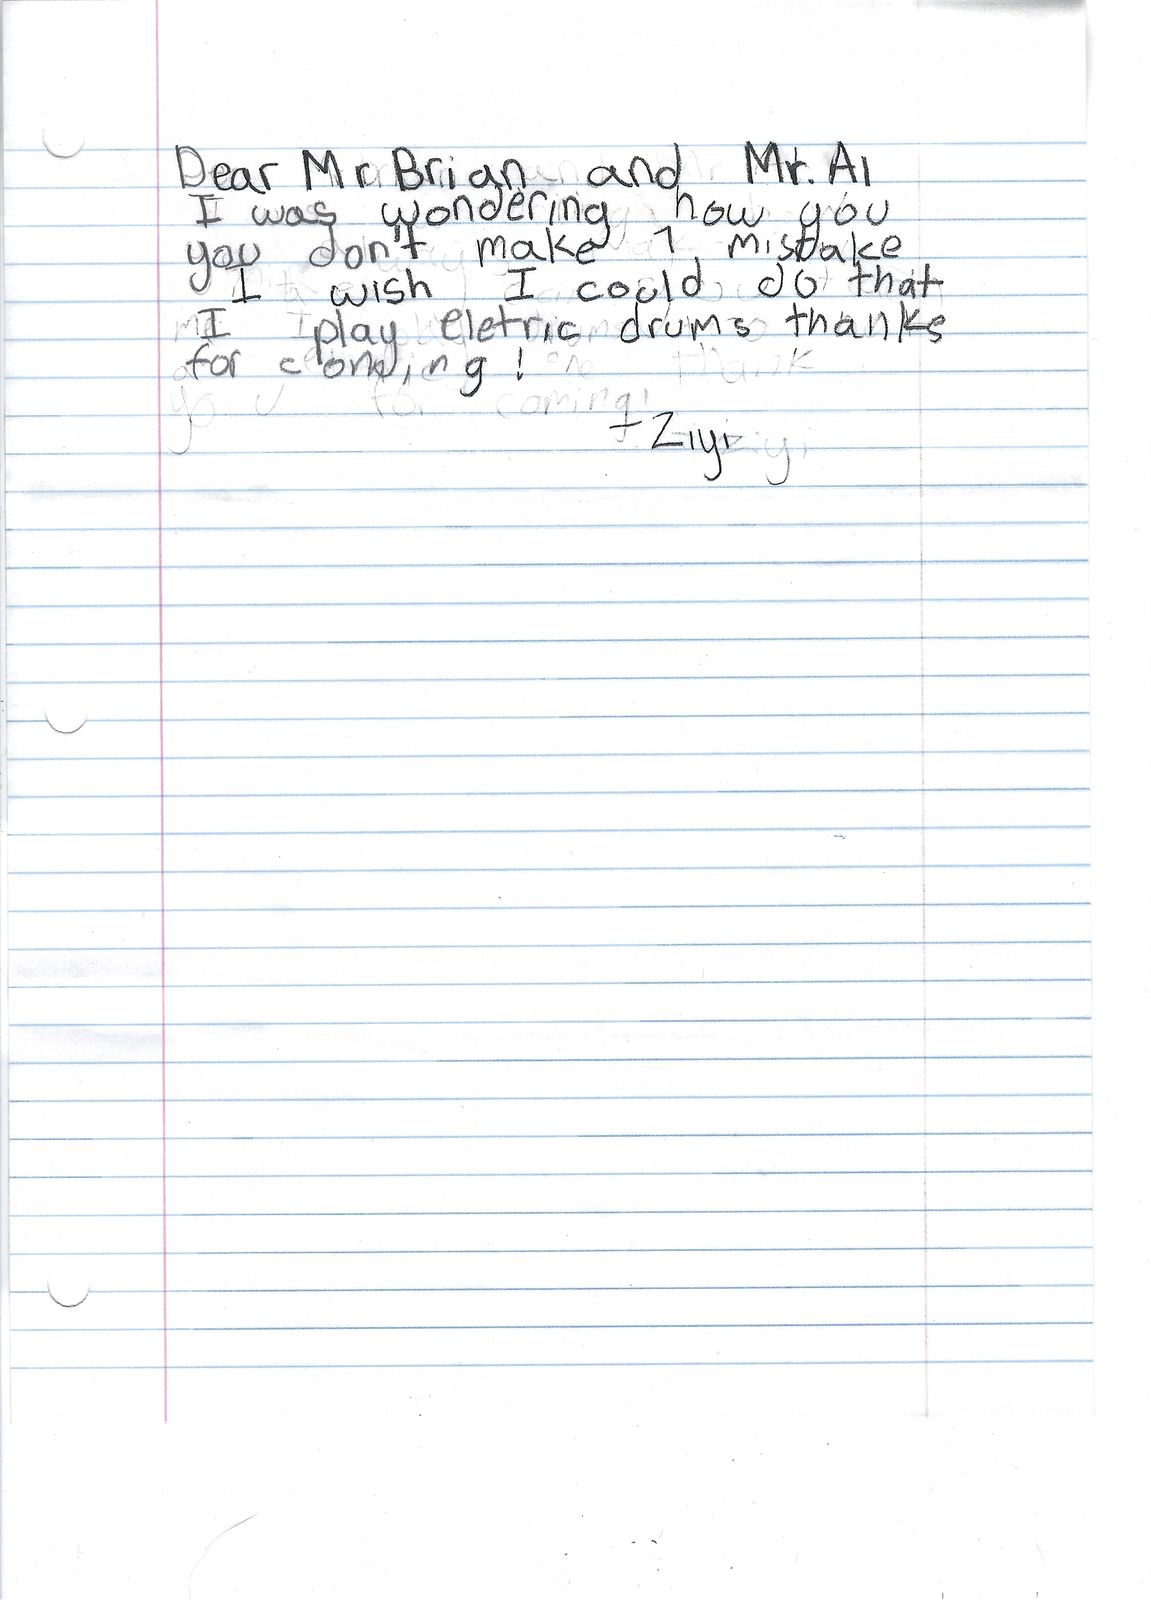 Dear Mr. Brian and Mr. Al
I was wondering how you
you don't make 1 mistake
I wish I could do that
I play eletric drums thanks
for coming!
thank
you for coming!
- Ziyi
Ziyi